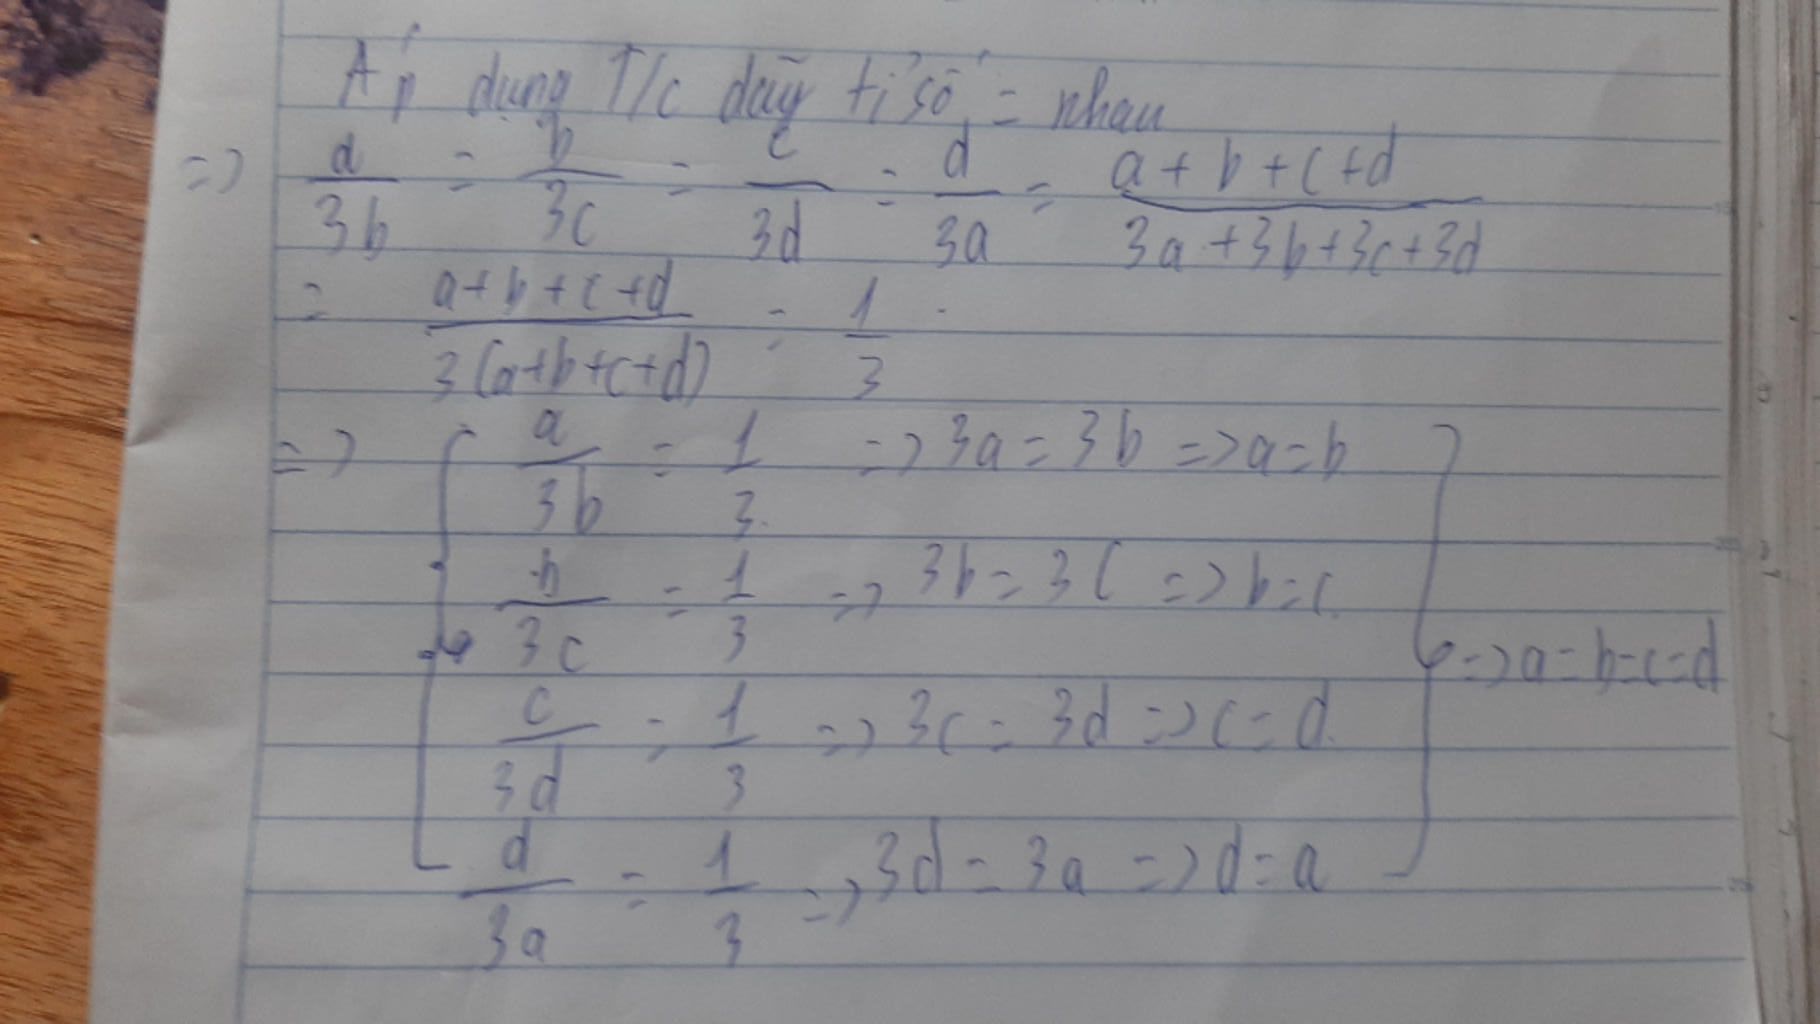 Áp dụng T/c dãy tỉ số = nhau
=> a/3b = b/3c = c/3d = d/3a = a+b+c+d/3a+3b+3c+3d
= a+b+c+d/3(a+b+c+d) = 1/3
=> a/3b = 1/3 => 3a = 3b => a = b
b/3c = 1/3 => 3b = 3c => b = c
c/3d = 1/3 => 3c = 3d => c = d
d/3a = 1/3 => 3d = 3a => d = a
=> a = b = c = d